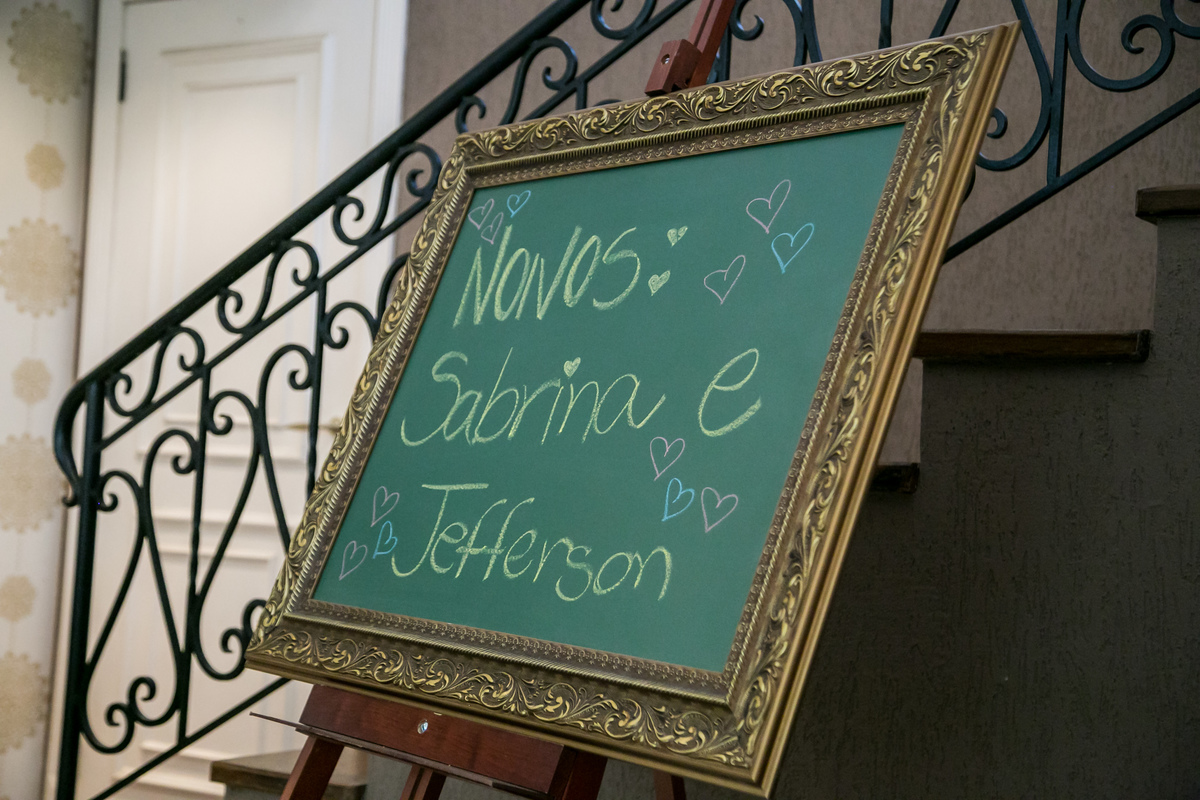 Noivos:
Sabrina e
Jefferson